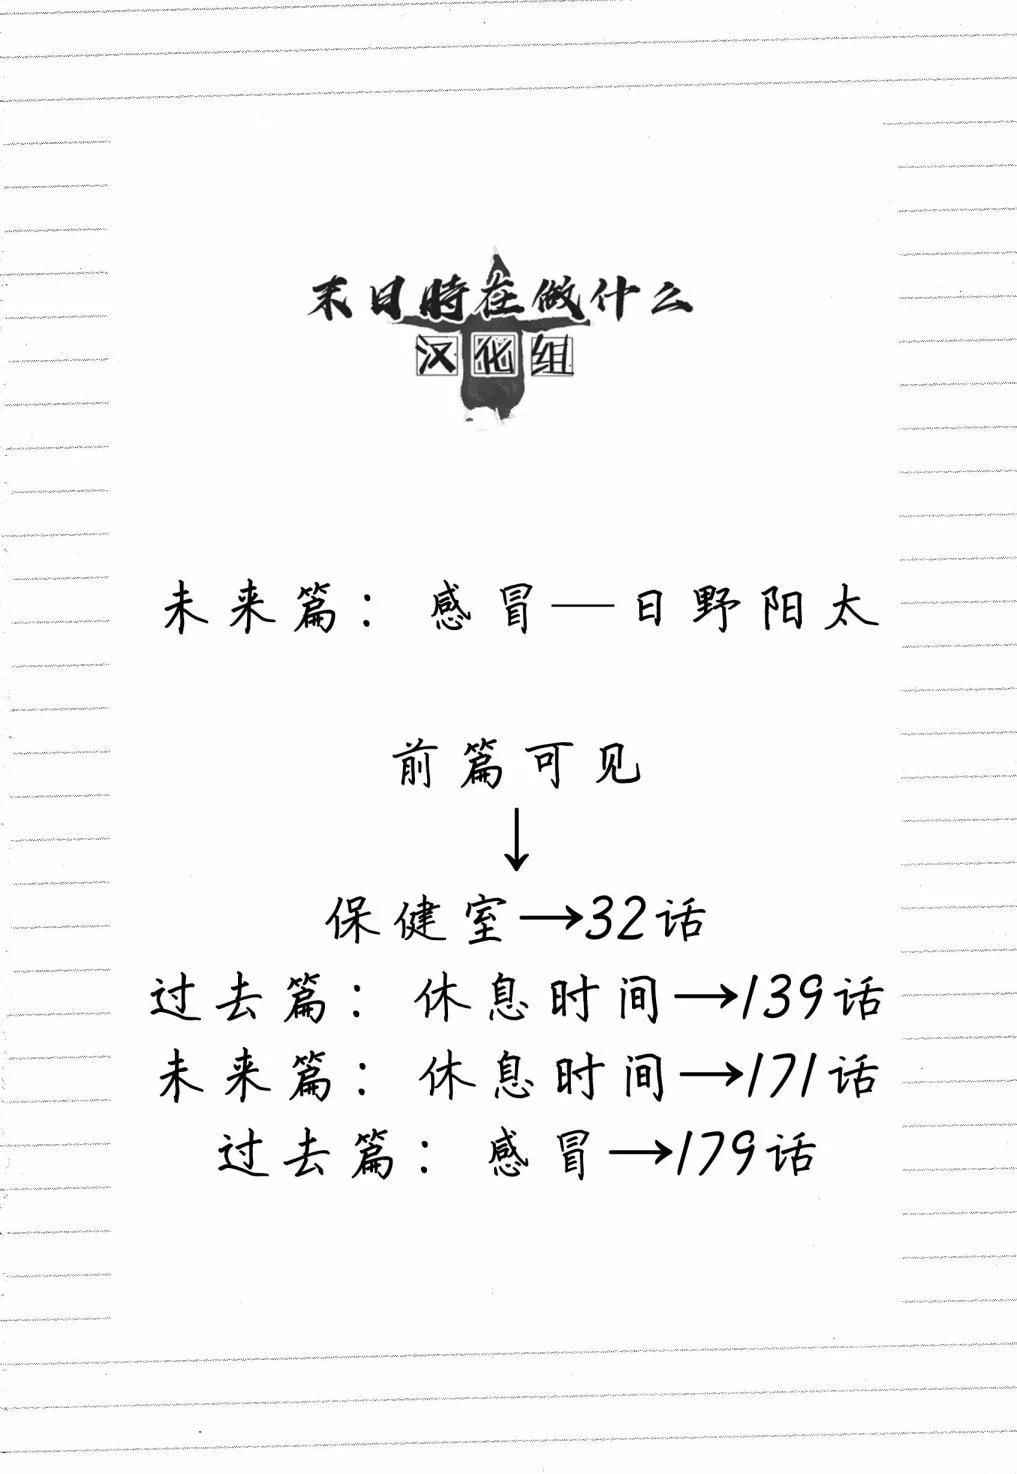 末日時在做什么
汉化组
未来篇：感冒—日野阳太
前篇可见
↓
保健室→32话
过去篇：休息时间→139话
未来篇：休息时间→171话
过去篇：感冒→179话